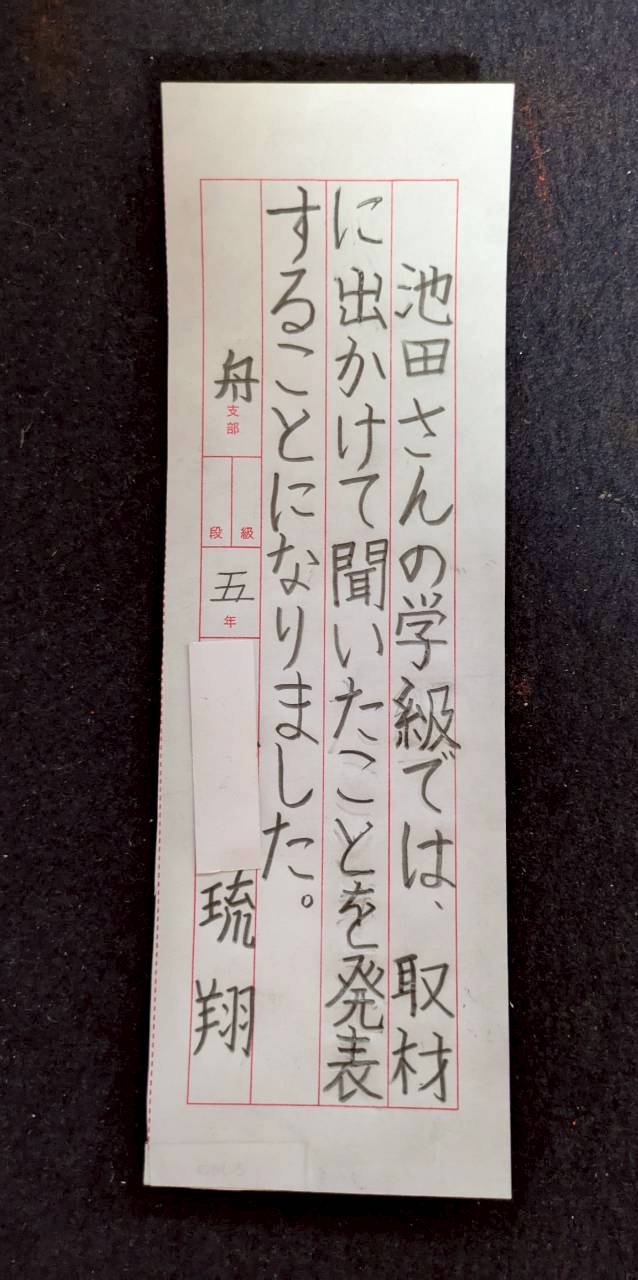 池田さんの学級では、取材
に出かけて聞いたことを発表
することになりました。
舟支部
段級
五年
琉翔